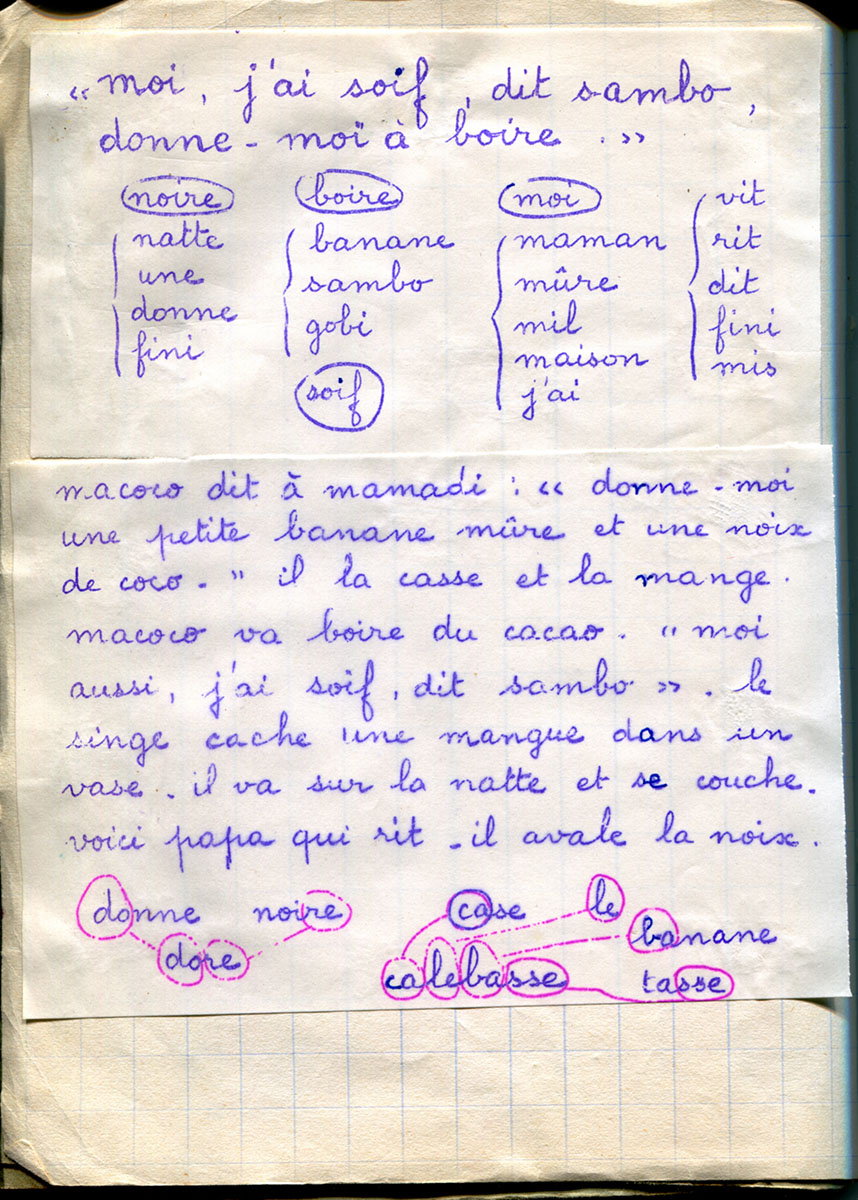 « moi, j'ai soif, dit sambo,
donne-moi à boire. »
noire boire moi vit
natte banane maman rit
une sambo mûre dit
donne gobi mil fini
fini maison mis
soif j'ai
macoco dit à mamadi : « donne-moi
une petite banane mûre et une noix
de coco. " il la casse et la mange.
macoco va boire du cacao. " moi
aussi, j'ai soif, dit sambo ». le
singe cache une mangue dans un
vase. il va sur la natte et se couche.
voici papa qui rit. il avale la noix.
donne noire case le
banane
dore calebasse tasse